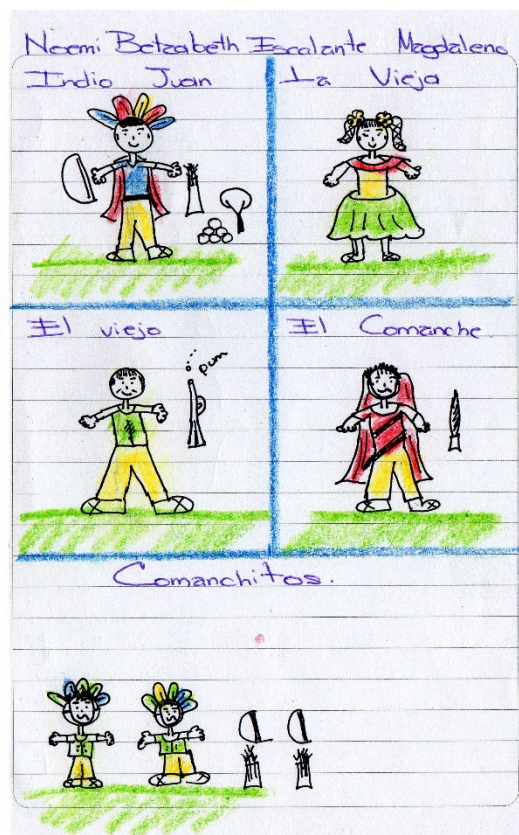 Noemi Betzabeth Escalante Magdaleno
Indio Juan
La Vieja
El viejo
pum
El Comanche
Comanchitos.